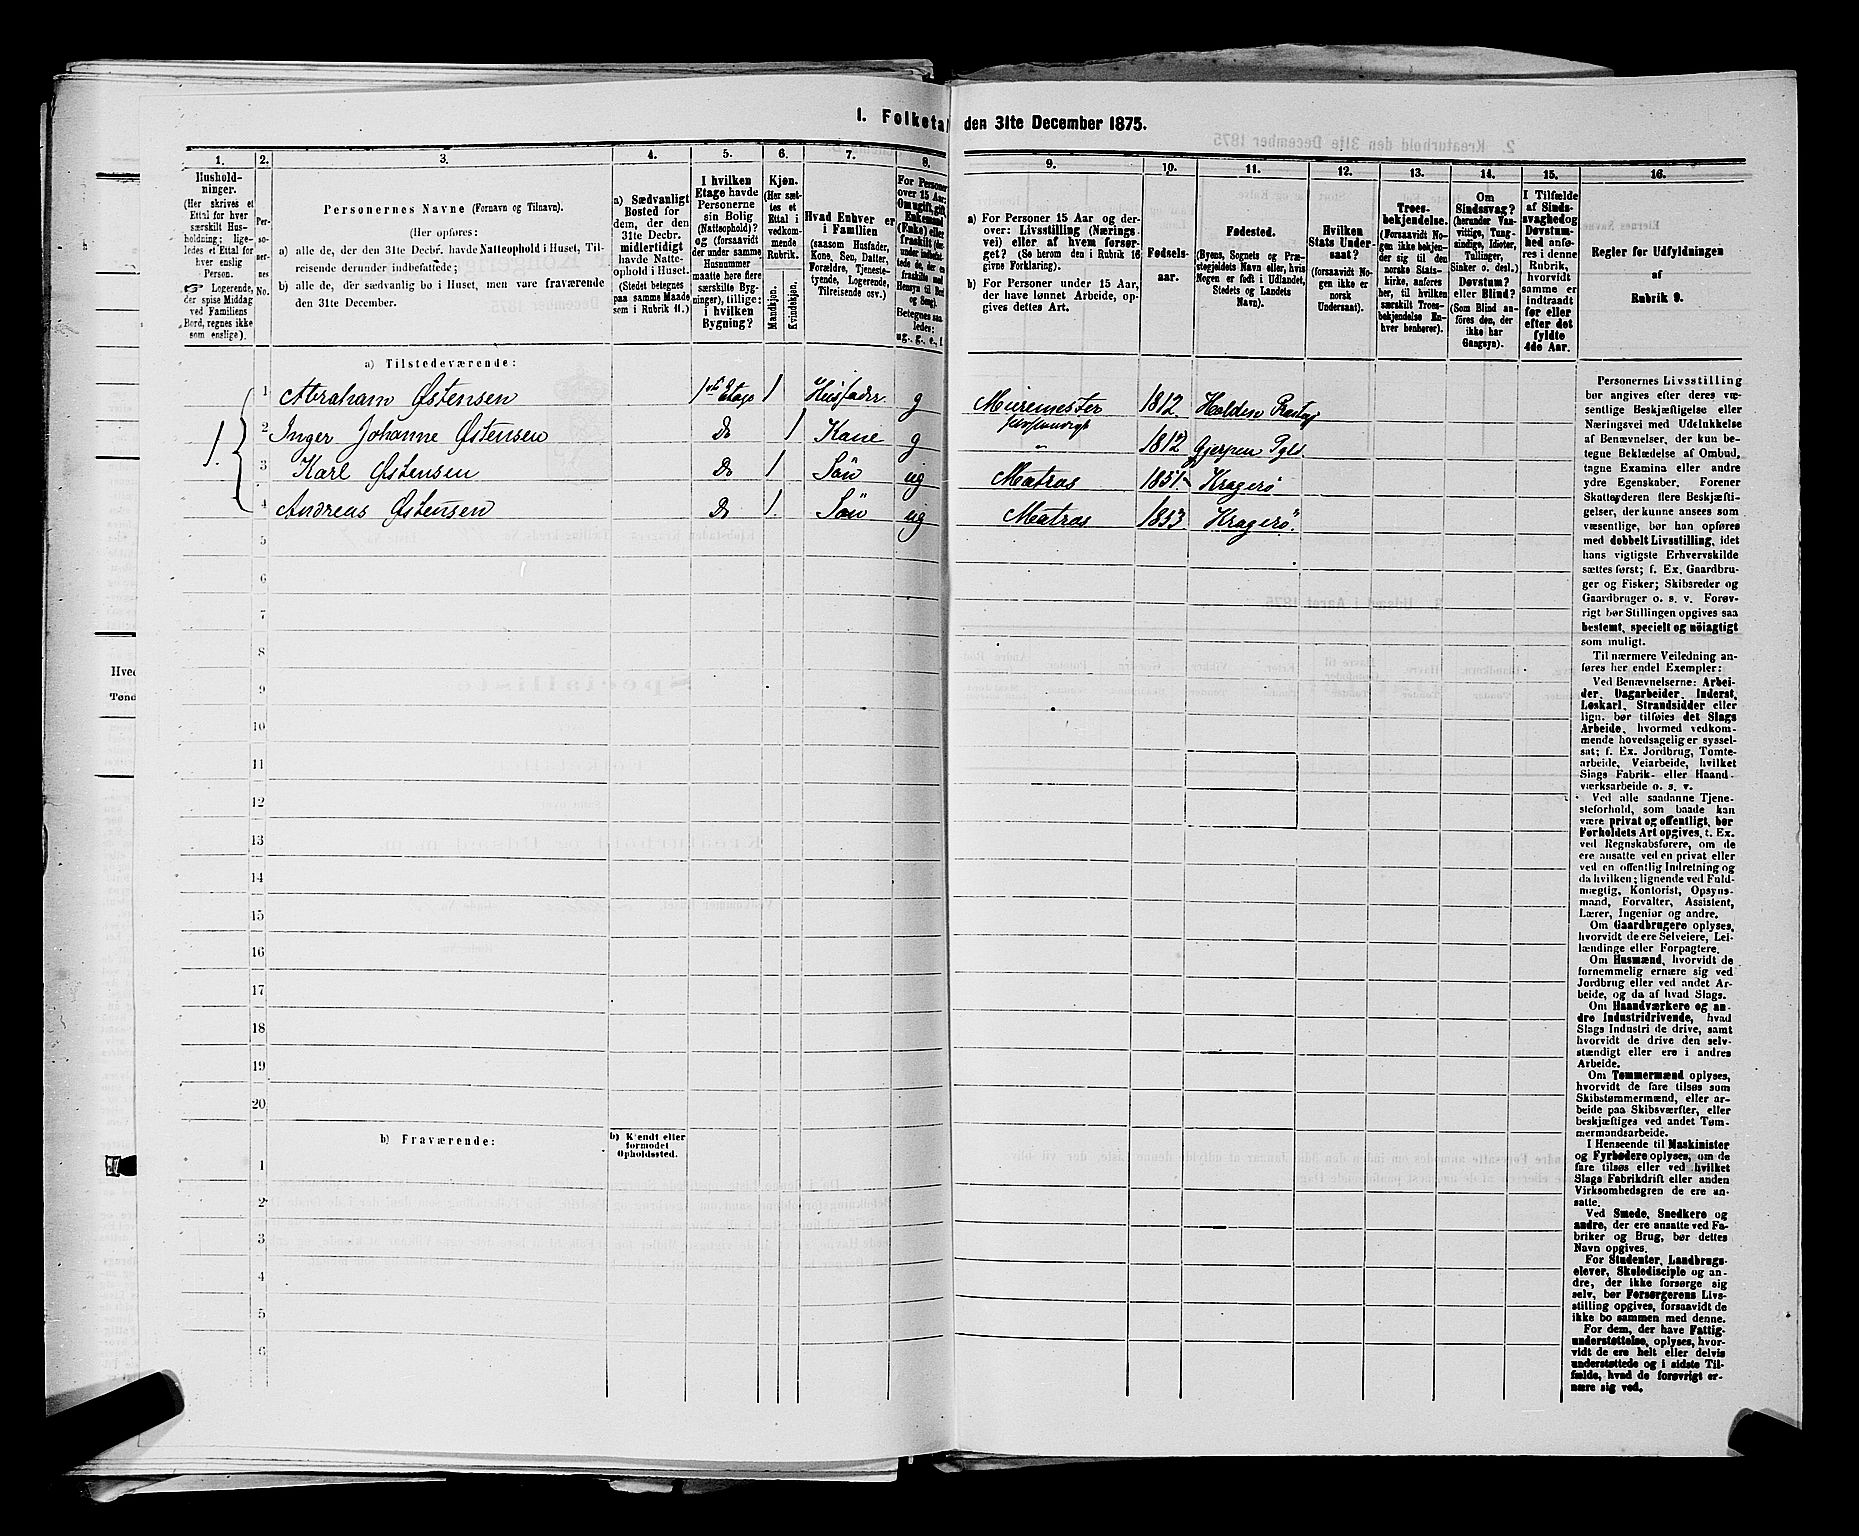 I. Folketal den 31te December 1875.
1. 2. 3. 4. 5. 6. 7. 8. 9. 10. 11. 12. 13. 14. 15. 16.
Hushold-
ninger.
(Her skrives et
Ettal for hver
særskilt Hus-
holdning; lige-
ledes et Ettal for
hver enslig
Person.
☞ Logerende,
der spise Middag
ved Familiens
Bord, regnes ikke
som enslige).
Per-
so-
ner-
nes
No.
Personernes Navne (Fornavn og Tilnavn).
(Her opføres:
a) alle de, der den 31te Decbr. havde Natteophold i Huset, Til-
reisende derunder indbefattede;
b) alle de, der sædvanlig bo i Huset, men vare fraværende
den 31te December.
a) Sædvanligt
Bosted for
dem, der den
31te Decbr.
midlertidigt
havde Natte-
ophold i Huset.
(Stedet betegnes
paa samme Maade
som i Rubrik 11.)
I hvilken
Etage havde
Personerne
sin Bolig
(Natteophold)?
og (forsaavidt
der under samme
Husnummer
maatte høre flere
særskilte Byg-
ninger), tillige:
i hvilken
Bygning?
Kjøn.
(Her sæt-
tes et
Ettal i
vedkom-
mende
Rubrik.
Mandkjøn.
Kvindekjøn.
Hvad Enhver er
i Familien
(saasom Husfader,
Kone, Søn, Datter,
Forældre, Tjeneste-
tyende, Logerende,
Tilreisende osv.)
For Personer
over 15 Aar:
Om ugift, gift,
Enkemand
(Enke) eller
fraskilt
Betegnes saa-
ledes:
ug., g., e., f.
a) For Personer 15 Aar og der-
over: Livsstilling (Nærings-
vei) eller af hvem forsør-
get? (Se herom den i Rubrik 16
givne Forklaring).
b) For Personer under 15 Aar,
der have lønnet Arbeide, op-
gives dettes Art.
Fødsels-
aar.
Fødested.
(Byens, Sognets og Præ-
stegjeldets Navn eller, hvis
Nogen er født i Udlandet,
Stedets og Landets
Navn).
Hvilken
Stats Under-
saat?
(forsaavidt No-
gen ikke er
norsk
Undersaat).
Troes-
bekjendelse.
(Forsaavidt No-
gen ikke bekjen-
der sig til den
norske Stats-
kirke, anføres
her, til hvilken
særskilt Troes-
bekjendelse En-
hver henhører).
Om
Sindssvag?
(herunder Van-
vittige, Tung-
sindige, Idioter,
Tullinger,
Sinker o. desl.)
Døvstum?
eller Blind?
(Som Blind an-
føres den, der
ikke har
Gangsyn).
I Tilfælde
af Sinds-
svaghed og
Døvstum-
hed anfø-
res i denne
Rubrik,
hvorvidt
samme er
indtraadt
før eller
efter det
fyldte
4de Aar.
Regler for Udfyldningen
af
Rubrik 9.
a) Tilstedeværende:
1. 1 Abraham Østensen 1ste Etage 1 Husfader g Murmester 1812 Holden Prstgj
selvstændigt
2 Inger Johanne Østensen Do 1 Kone g " 1812 Gjerpen Pgld
3 Karl Østensen Do 1 Sön ug Matros 1851 Kragerø
4 Andreas Østensen Do 1. Sön ug Matros 1853 Kragerø.
5
6
7
8
9
10
11
12
13
14
15
16
17
18
19
20
b) Fraværende: b) Kjendt eller
formodet
Opholdssted.
1
2
3
4
5
6
Personernes Livsstilling
bør angives efter deres væ-
sentlige Beskjæftigelse eller
Næringsvei med Udelukkelse
af Benævnelser, der kun be-
tegne Beklædelse af Ombud,
tagne Examina eller andre
ydre Egenskaber. Forener
Skatteyderen flere Beskjæfti-
gelser, der kunne ansees som
væsentlige, bør han opføres
med dobbelt Livsstilling, idet
hans vigtigste Erhvervskilde
sættes først; f. Ex. Gaardbru-
ger og Fisker; Skibsreder og
Gaardbruger o. s. v. Forøv-
rigt bør Stillingen opgives saa
bestemt, specielt og nöiagtigt
som muligt.
Til nærmere Veiledning an-
føres her endel Exempler:
Ved Benævnelserne: Arbei-
der, Dagarbeider, Inderst,
Løskarl, Strandsidder eller
lign. bør tilføies det Slags
Arbeide, hvormed vedkom-
mende hovedsagelig er syssel-
sat; f. Ex. Jordbrug, Tomte-
arbeide, Veiarbeide, hvilket
Slags Fabrik- eller Haand-
værksarbeide o. s. v.
Ved alle saadanne Tjene-
steforhold, som baade kan
være privat og offentligt, bør
Forholdets Art opgives, t. Ex.
ved Regnskabsførere, om de
ere ansatte ved en privat eller
ved en offentlig Indretning og
da hvilken; lignende ved Fuld-
mægtig, Kontorist, Opsyns-
mand, Forvalter, Assistent,
Lærer, Ingeniør og andre.
Om Gaardbrugere oplyses,
hvorvidt de ere Selveiere, Lei-
lændinge eller Forpagtere.
Om Husmænd, hvorvidt de
fornemmelig ernære sig ved
Jordbrug eller ved andet Ar-
beide, og da af hvad Slags.
Om Haandværkere og an-
dre Industridrivende, hvad
Slags Industri de drive, samt
hvorvidt de drive den selv-
stændigt eller ere i andres
Arbeide.
Om Tømmermænd oplyses,
hvorvidt de fare tilsøs som
Skibstømmermænd, eller ar-
beide paa Skibsværfter, eller
beskjæftiges ved andet Tøm-
mermandsarbeide.
I Henseende til Maskinister
og Fyrbødere oplyses, om de
fare tilsøs eller ved hvilket
Slags Fabrikdrift eller anden
Virksomhedsgren de ere an-
satte.
Ved Smede, Snedkere og
andre, der ere ansatte ved Fa-
briker og Brug, bør dettes
Navn opgives.
For Studenter, Landbrugs-
elever, Skoledisciple og an-
dre, der ikke forsørge sig
selv, bør Forsørgerens Livs-
stilling opgives, forsaavidt de
ikke bo sammen med denne.
For dem, der have Fattig-
understøttelse, oplyses, hvor-
vidt de ere helt eller delvis
understøttede og i sidste Til-
fælde, hvad de forøvrigt er-
nære sig ved.
Hved
Tønd